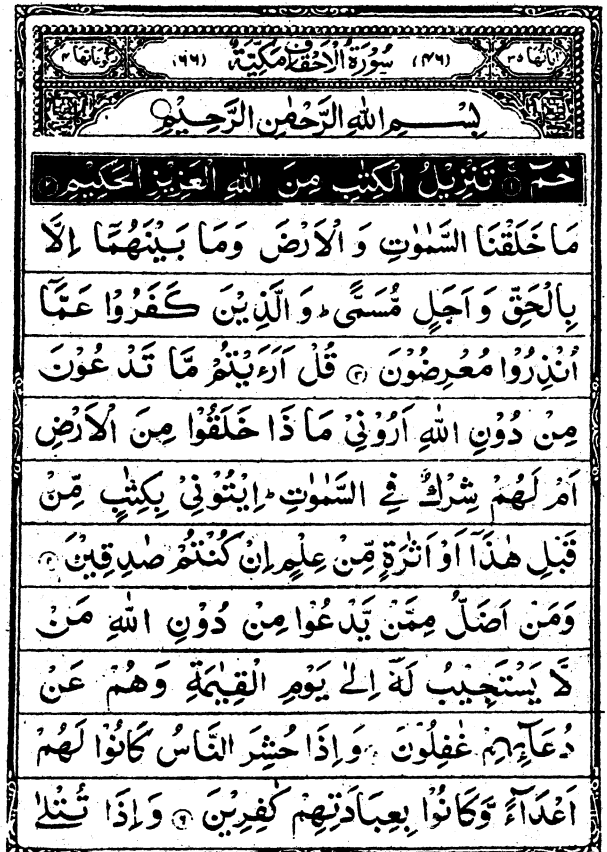 اٰیاتها ۳۵ (۴۶) سُوْرَةُ الْاَحْقَافِ مَكِّیَّةٌ (۶۶) رکوعاتها ۴
بِسْمِ اللهِ الرَّحْمٰنِ الرَّحِیْمِ
حٰمٓ ۚ﴿۱﴾ تَنْزِیْلُ الْكِتٰبِ مِنَ اللهِ الْعَزِیْزِ الْحَكِیْمِ ﴿۲﴾
مَا خَلَقْنَا السَّمٰوٰتِ وَ الْاَرْضَ وَمَا بَیْنَهُمَاۤ اِلَّا
بِالْحَقِّ وَ اَجَلٍ مُّسَمًّی ؕ وَ الَّذِیْنَ كَفَرُوْا عَمَّاۤ
اُنْذِرُوْا مُعْرِضُوْنَ ﴿۳﴾ قُلْ اَرَءَیْتُمْ مَّا تَدْعُوْنَ
مِنْ دُوْنِ اللهِ اَرُوْنِیْ مَا ذَا خَلَقُوْا مِنَ الْاَرْضِ
اَمْ لَهُمْ شِرْكٌ فِی السَّمٰوٰتِ ؕ اِیْتُوْنِیْ بِكِتٰبٍ مِّنْ
قَبْلِ هٰذَاۤ اَوْ اَثٰرَةٍ مِّنْ عِلْمٍ اِنْ كُنْتُمْ صٰدِقِیْنَ ﴿۴﴾
وَمَنْ اَضَلُّ مِمَّنْ یَّدْعُوْا مِنْ دُوْنِ اللهِ مَنْ
لَّا یَسْتَجِیْبُ لَهٗۤ اِلٰی یَوْمِ الْقِیٰمَةِ وَهُمْ عَنْ
دُعَآئِهِمْ غٰفِلُوْنَ وَ اِذَا حُشِرَ النَّاسُ كَانُوْا لَهُمْ
اَعْدَآءً وَّكَانُوْا بِعِبَادَتِهِمْ كٰفِرِیْنَ ﴿۶﴾ وَ اِذَا تُتْلٰی